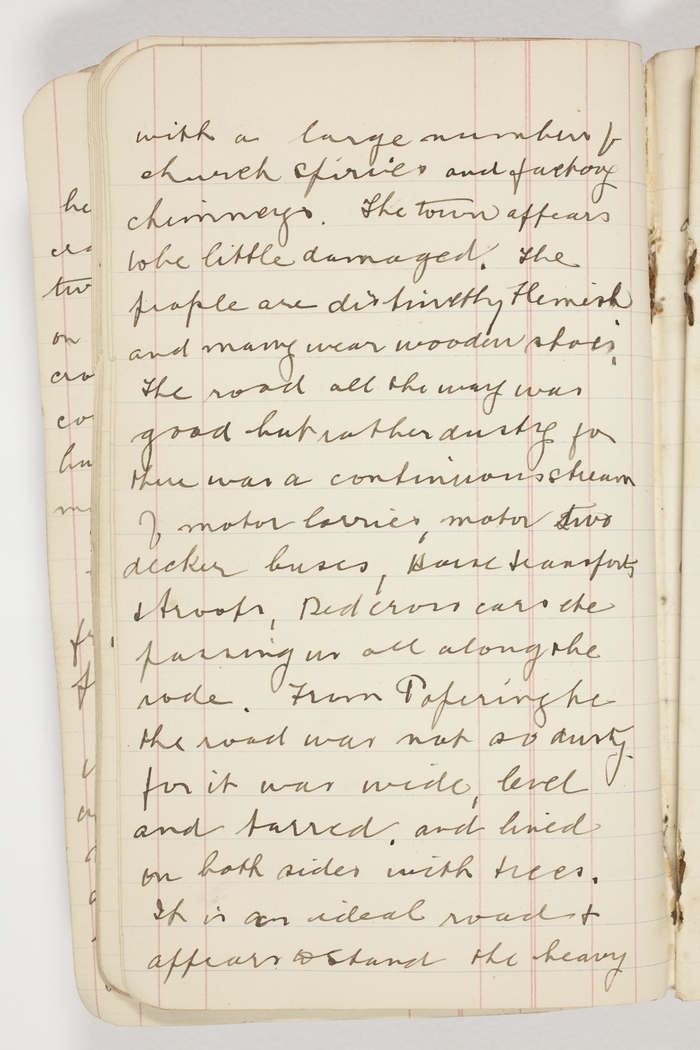 with a large number of
church spires and factory
chimneys. The town appears
to be little damaged. The
people are distinctly Flemish
and many wear wooden shoes.
The road all the way was
good but rather dusty for
there was a continuous stream
of motor lorries, motor two
decker buses, Horse transports
& troops, Red cross cars etc
passing us all along the
rode. From Poperinghe
the road was not so dusty
for it was wide, level
and tarred, and lined
on both sides with trees.
It is an ideal road &
appears to stand the heavy
he
cra
two
on
cro
co
bu
m
fr
f